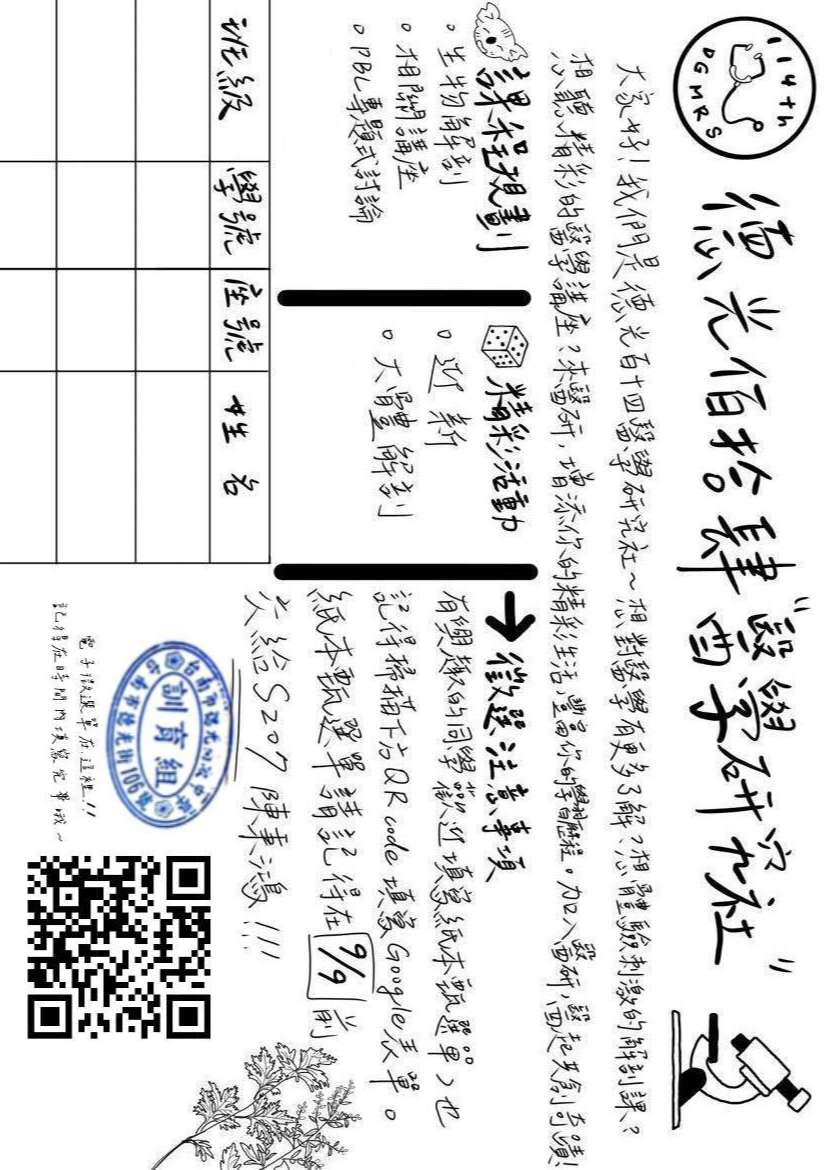 114th
DGMRS
德光佰拾肆"醫學研究社"
大家好!我們是德光百十四醫學研究社~想對醫學有更多了解?想體驗刺激的解剖課?
想聽精彩的醫學講座?來醫研,增添你的精彩生活,豐富你的學習歷程。加入醫研,醫起共創奇蹟!
課程規劃
。生物解剖
。相關講座
。PBL專題式討論
精彩活動
。迎新
。大體解剖
→徵選注意事項
有興趣的同學歡迎填寫紙本甄選單,也
記得掃描下方QR code填寫Google表單。
紙本甄選單請記得在9/9前
交給S207陳東鴻!!!
班級 學號 座號 姓名
訓育組
電子徵選單在這裡!!
記得在時間內填寫完畢哦~